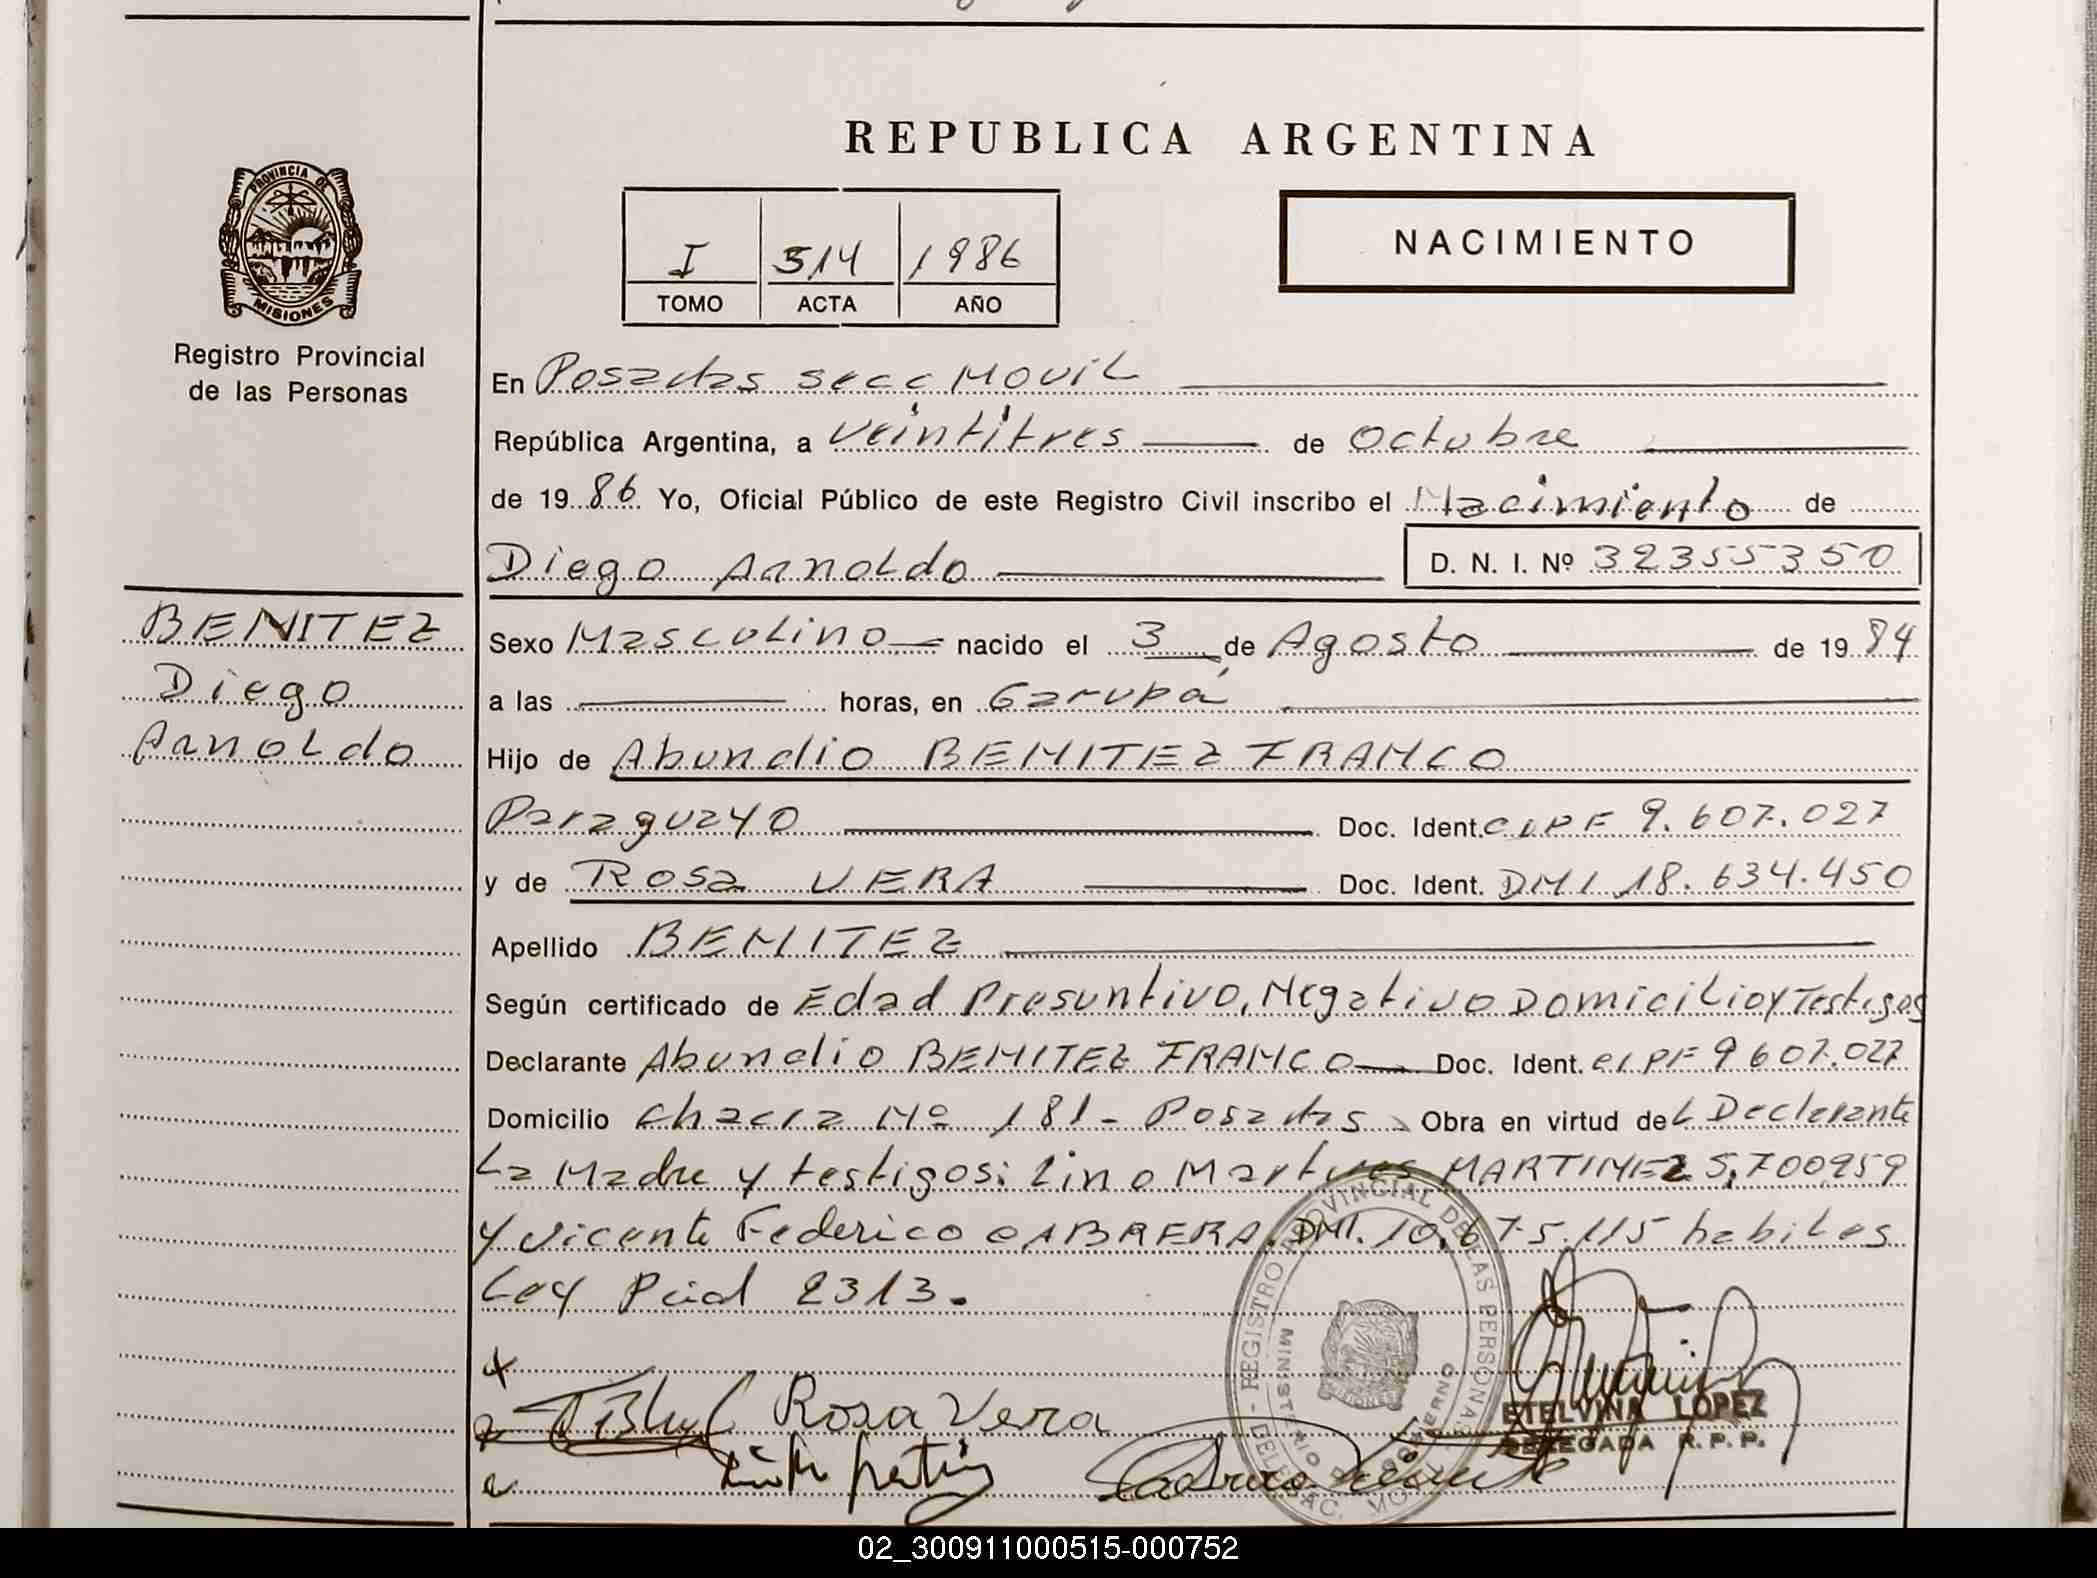 REPUBLICA ARGENTINA
PROVINCIA DE
MISIONES
Registro Provincial
de las Personas
I 314 1986
TOMO ACTA AÑO
NACIMIENTO
En Posadas secc Movil
República Argentina, a veintitres de octubre
de 1986 Yo, Oficial Público de este Registro Civil inscribo el Nacimiento de
Diego Arnoldo D. N. I. Nº 32355350
BENITEZ
Diego
Arnoldo
Sexo Masculino nacido el 3 de Agosto de 1984
a las horas, en Garupá
Hijo de Abundio BENITEZ FRANCO
Paraguayo Doc. Ident. CIPF 9.607.027
y de Rosa VERA Doc. Ident. DNI 18.634.450
Apellido BENITEZ
Según certificado de Edad Presuntivo, Negativo Domicilio y Testigos
Declarante Abundio BENITEZ FRANCO Doc. Ident. CIPF 9607.027
Domicilio chacra Nº 181 - Posadas Obra en virtud del Declarante
La Madre y testigos: Lino MARTINEZ 5,700959
y Vicente Federico CABRERA. DNI. 10.675.115 habiles
Ley Pcial 2313.
Rosa Vera
REGISTRO PROVINCIAL DE LAS PERSONAS
MINISTERIO DE GOBIERNO
ETELVINA LOPEZ
DELEGADA R. P. P.
02_300911000515-000752